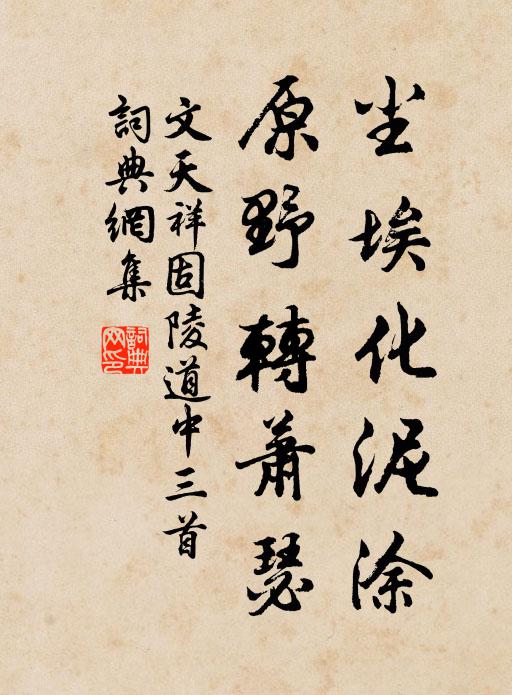 尘埃化泥涂
原野轉蕭瑟
文天祥固陵道中三首
詞典網集
詞典网印